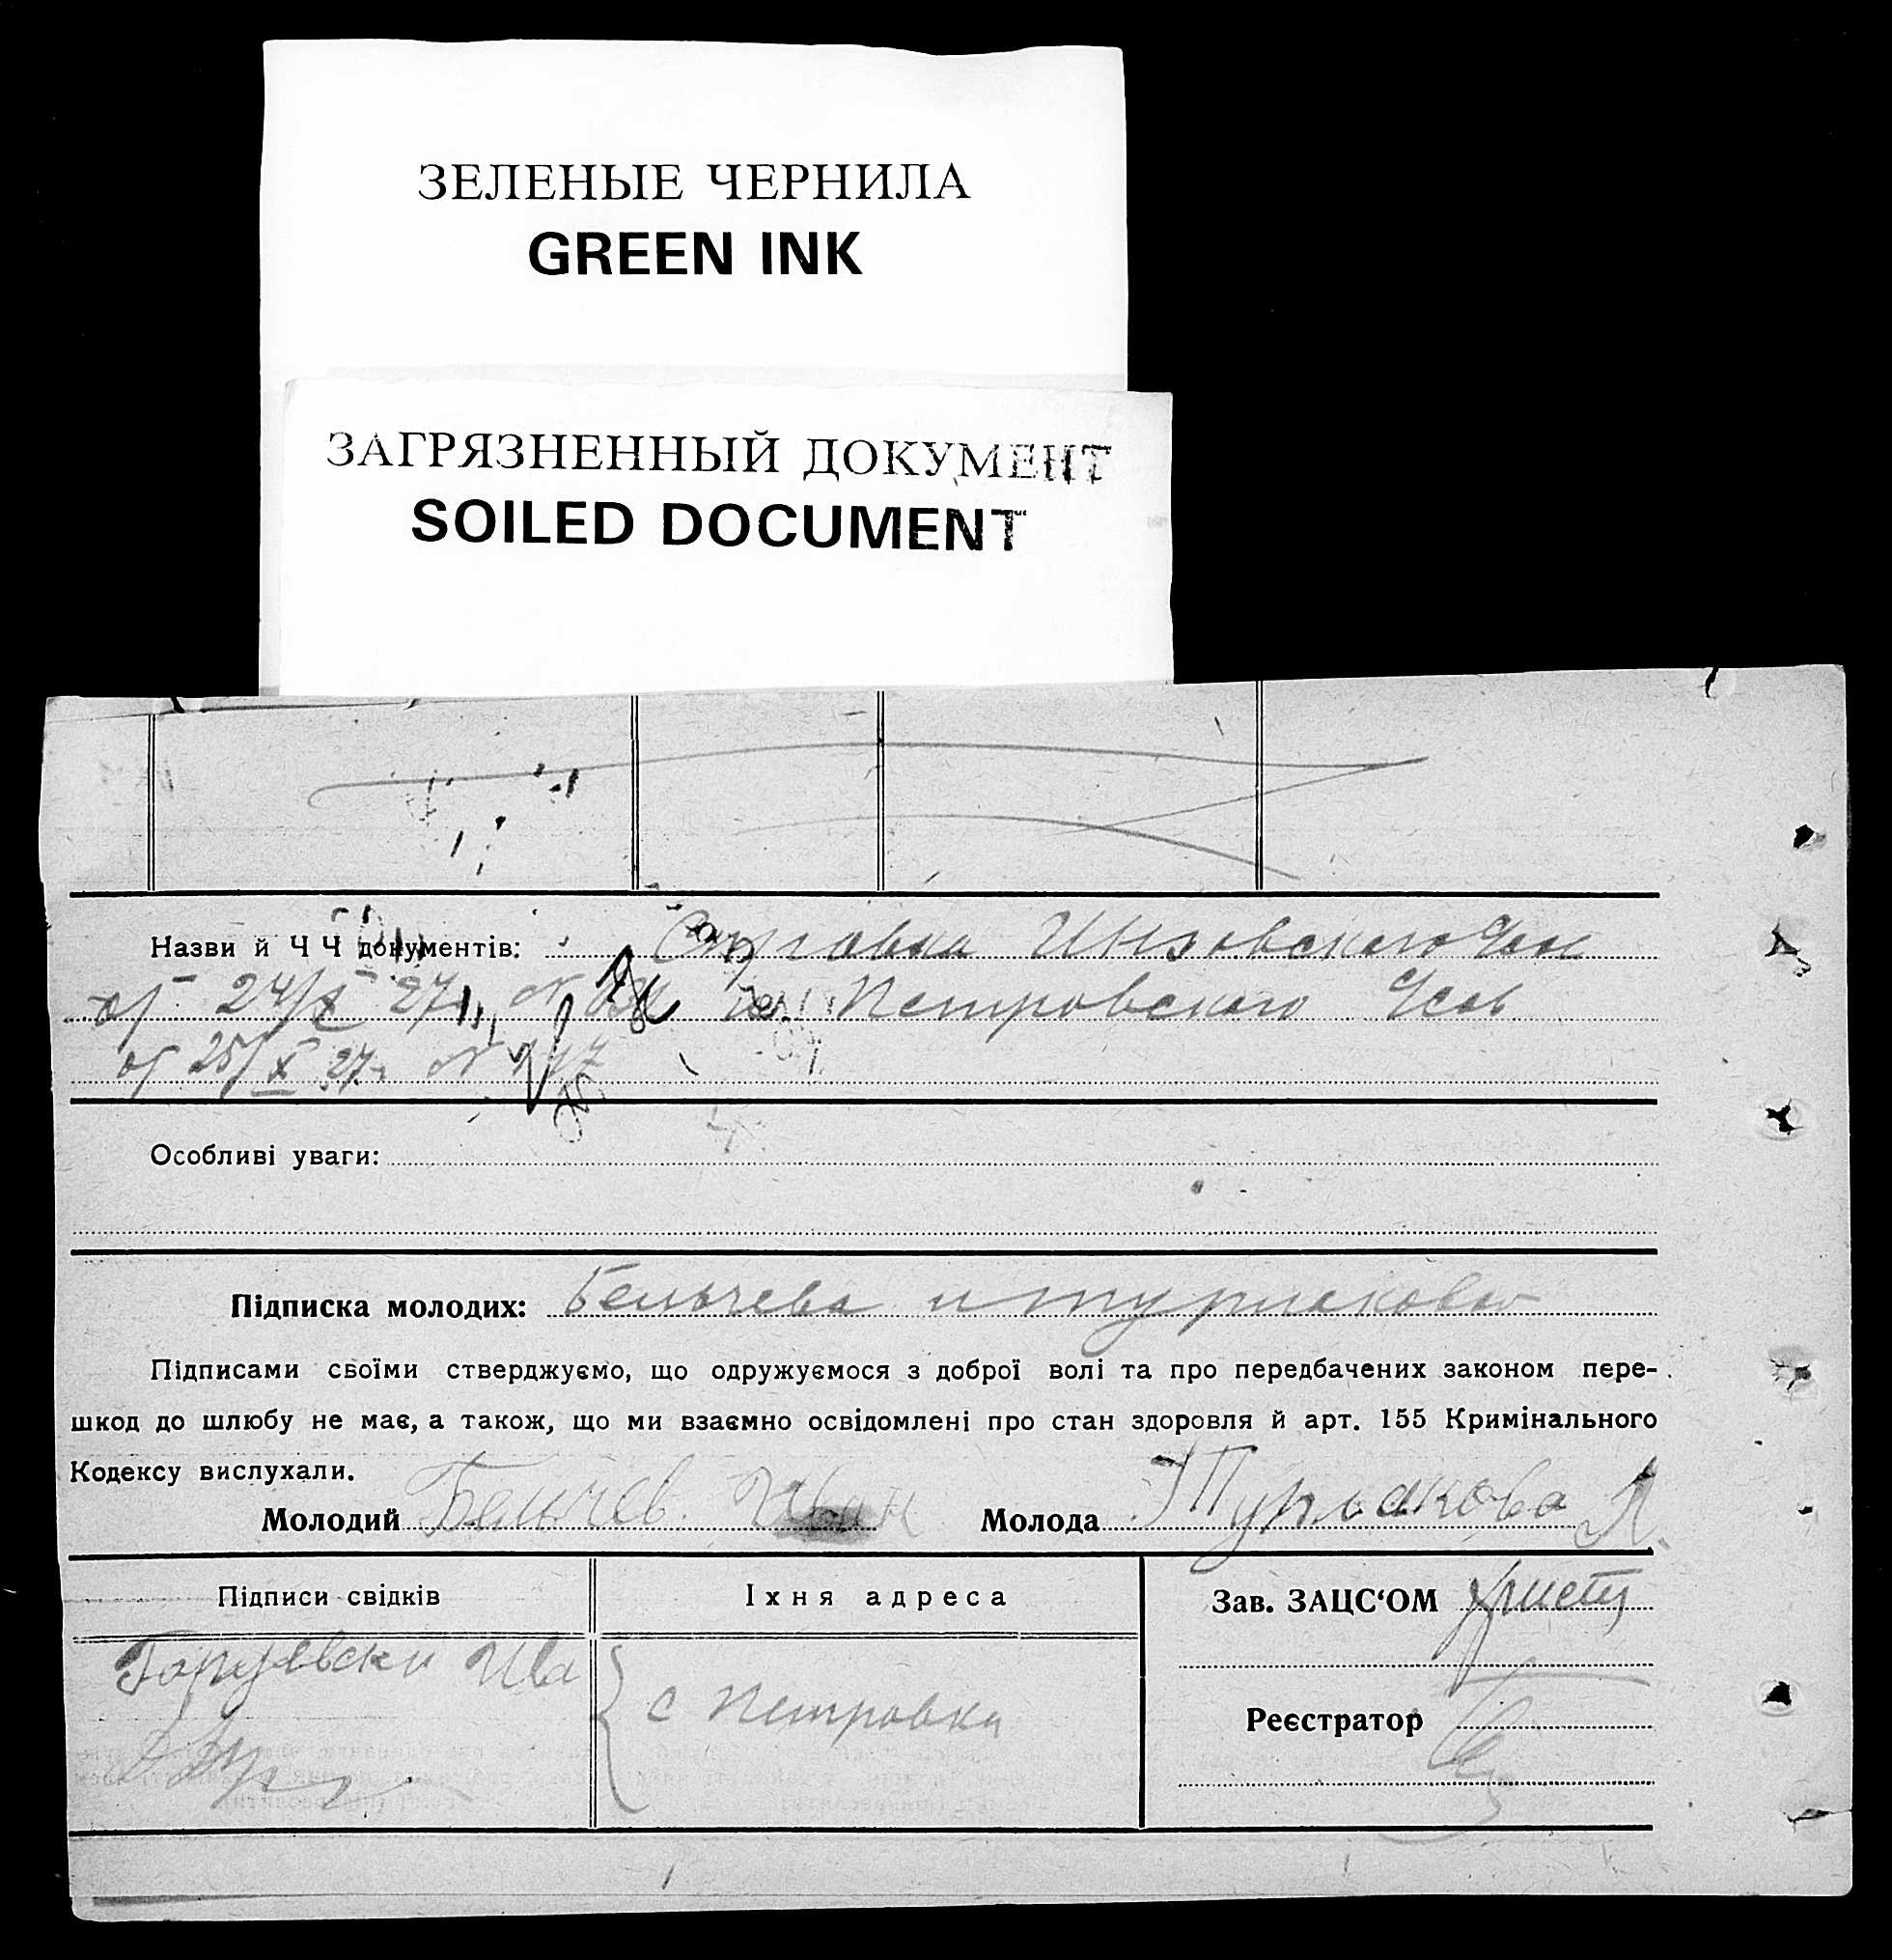 ЗЕЛЕНЫЕ ЧЕРНИЛА
GREEN INK
ЗАГРЯЗНЕННЫЙ ДОКУМЕНТ
SOILED DOCUMENT
Назви й Ч Ч документів: Справка Инзовского
от 24/X 27 и Петровского
от 25/X 27 N
Особливі уваги:
Підписка молодих: Бельчева и Турлакова
Підписами своїми стверджуємо, що одружуємося з доброї волі та про передбачених законом пере-
шкод до шлюбу не має, а також, що ми взаємно освідомлені про стан здоровля й арт. 155 Кримінального
Кодексу вислухали.
Молодий Бельчев Иван Молода Турлакова Л.
Підписи свідків Їхня адреса Зав. ЗАЦС‘ОМ
Ива с Петровка
Реєстратор